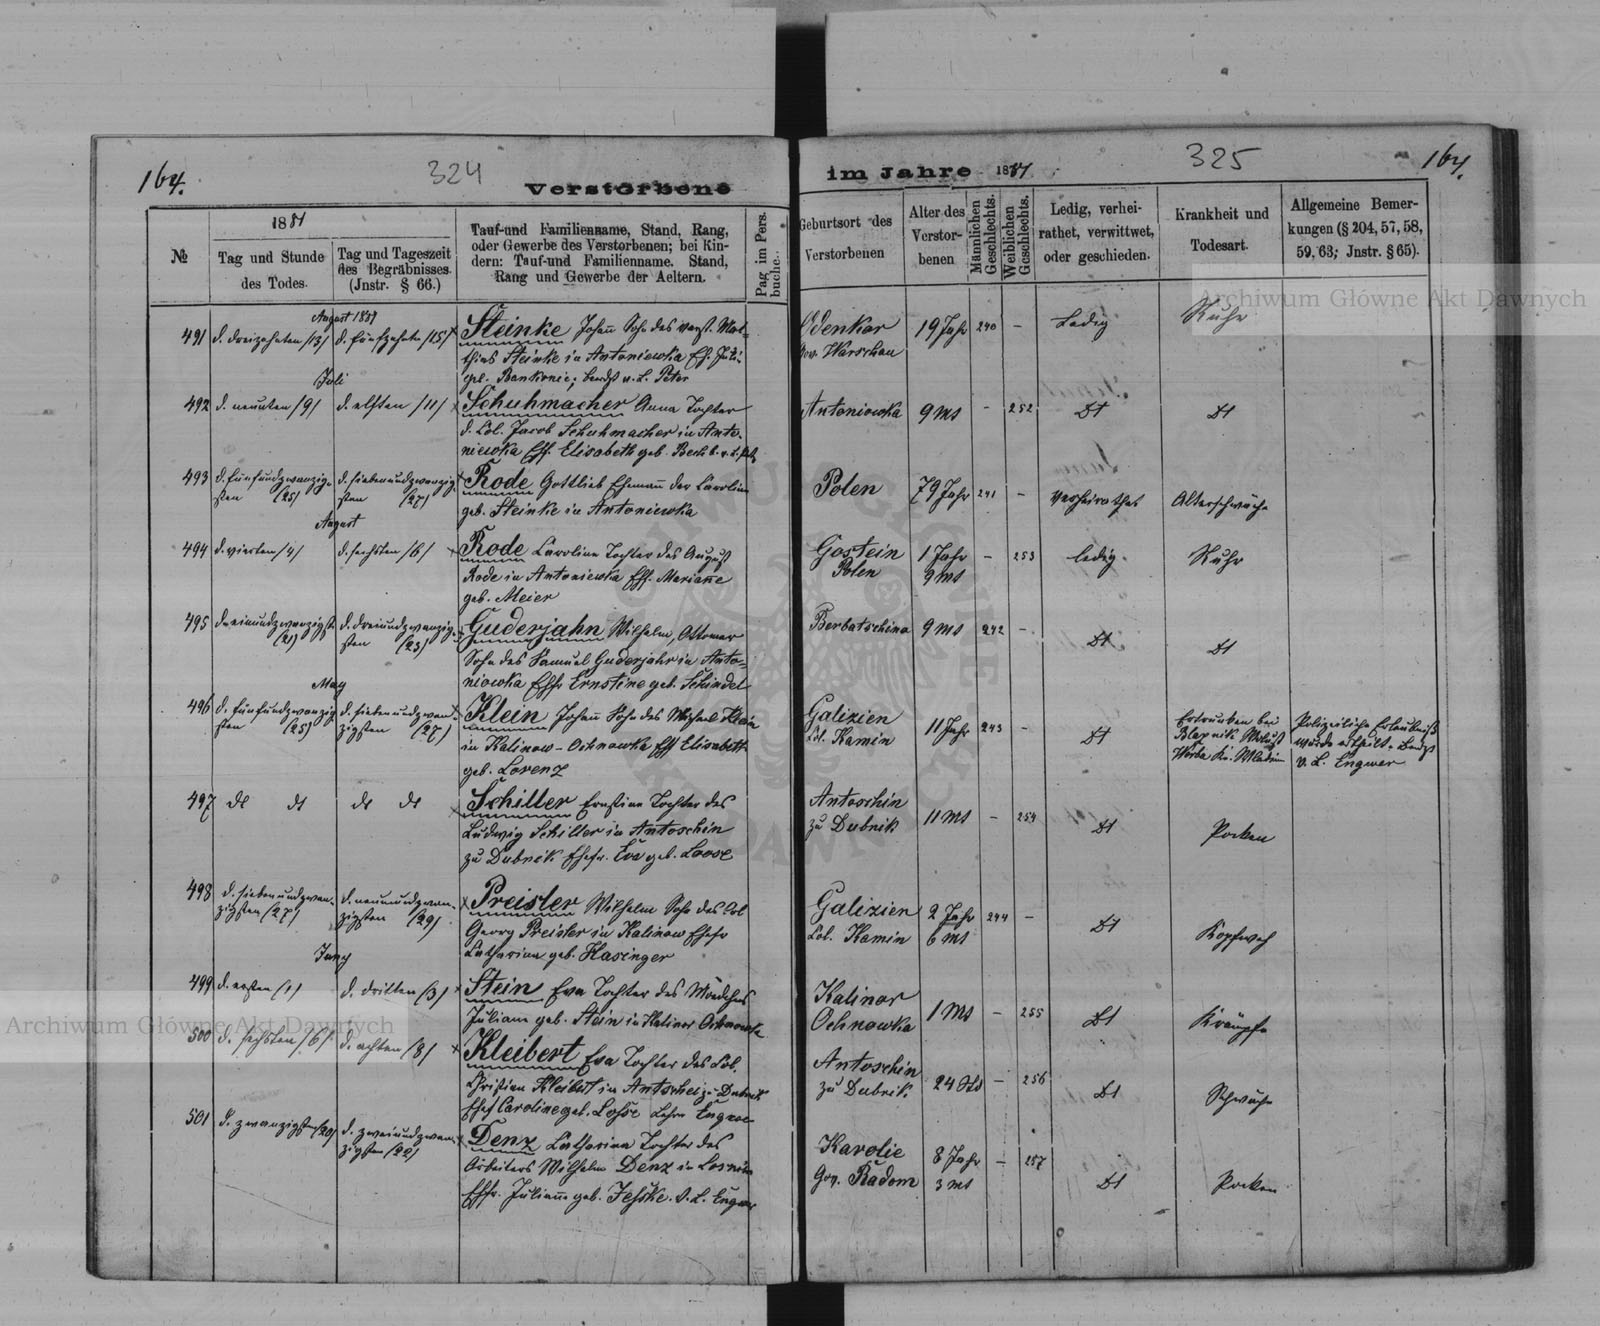 164.
324
Verstorbene
№
1881
Tag und Stunde
des Todes.
Tag und Tageszeit
des Begräbnisses.
(Jnstr. § 66.)
Tauf-und Familienname, Stand, Rang,
oder Gewerbe des Verstorbenen; bei Kin-
dern: Tauf-und Familienname. Stand,
Rang und Gewerbe der Aeltern.
Pag im Pers.
buche.
im Jahre 1881
325
164.
Geburtsort des
Verstorbenen
Alter des
Verstor-
benen
Männlichen
Geschlechts.
Weiblichen
Geschlechts.
Ledig, verhei-
rathet, verwittwet,
oder geschieden.
Krankheit und
Todesart.
Allgemeine Bemer-
kungen (§ 204, 57, 58,
59, 63; Jnstr. § 65).
August 1881
491 d. dreizehnten /13/ d. fünfzehnten /15/ Steinke Johann Sohn des verst. Mat-
thias Steinke in Antoniewka
geb.
19 Jahr 240 – Ledig Ruhr
Gov. Warschau
Juli
492 d. neunten /9/ d. elften /11/ Schuhmacher Anna Tochter
d. Col. Jacob Schuhmacher in Anto-
niewka Eff. Elisabeth geb.
Antoniowka 9 Ms – 252 dt dt
493 d. fünfundzwanzig-
sten /25/ d. siebenundzwanzig-
sten /27/ Rode Gottlieb Ehemann der Carolina
geb. Steinke in Antoniewka
Polen 79 Jahr 241 – Verheirathet Alterschwäche
August
494 d. vierten /4/ d. sechsten /6/ Rode Carolina Tochter des August
Rode in Antoniewka Eff. Marianne
geb. Meier
Gostein
Polen 1 Jahr
9 Ms – 253 ledig Ruhr
495 d. einundzwanzigst.
/21/ d. dreiundzwanzig-
sten /23/ Guderjahn Wilhelm, Ottomar
Sohn des Samuel Guderjahn in Anto-
niowka Ehfr Ernstine geb. Schindel
Berbatschina 9 Ms 242 – dt dt
May
496 d. fünfundzwanzig-
sten /25/ d. siebenundzwan-
zigsten /27/ Klein Johann Sohn des Michael Klein
in Kalinow-Ochnowka Eff Elisabeth
geb. Lorenz
Galizien
Col. Kamin 11 Jahr 243 – dt Ertrunken bei
Polizeiliche Erlaubniß
wurde ertheilt.
v. L. Engwer
497 dt dt dt dt Schiller Ernstina Tochter des
Ludwig Schiller in Antoschin
zu Dubnik Ehefr. Eva geb. Loose
Antoschin
zu Dubnik 11 Ms – 254 dt Pocken
498 d. siebenundzwan-
zigsten /27/ d. neunundzwan-
zigsten /29/ Preisler Wilhelm Sohn des Col
Georg Preisler in Kalinow Ehefr
Catharina geb. Hasinger
Galizien
Col. Kamin 2 Jahr
6 Ms 244 – dt Kopfweh
Juny
499 d. ersten /1/ d. dritten /3/ Stein Eva Tochter des Mädchens
Juliana geb. Stein in Kalinow Ochnowka
Kalinow
Ochnowka 1 Ms – 255 dt Krämpfe
500 d. sechsten /6/ d. achten /8/ Kleibert Eva Tochter des Col.
Christian Kleibert in zu Dubnik
Ehefr Caroline geb. Lohse Lehrer Engwer
Antoschin
zu Dubnik 24 Std – 256 dt Schwäche
501 d. zwanzigsten /20/ d. zweiundzwan-
zigsten /22/ Denz Catharina Tochter des
Arbeiters Wilhelm Denz in
Ehfr. Juliane geb. Jeschke. v. L. Engwer
Karolie
Gov. Radom 8 Jahr
3 Ms – 257 dt Pocken
Archiwum Główne Akt Dawnych
Archiwum Główne Akt Dawnych